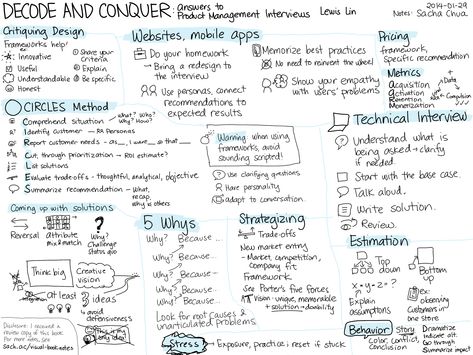 DECODE AND CONQUER: Answers to Product Management Interviews Lewis Lin
2014-01-29
Notes: Sacha Chua
Critiquing Design
Frameworks help!
Innovative
Useful
Understandable
Honest
① Share your criteria.
② Explain
③ Be specific
Websites, mobile apps
Do your homework
Bring a redesign to the interview
Use personas, connect recommendations to expected results
Memorize best practices
No need to reinvent the wheel!
Show your empathy with users' problems
Pricing
framework,
specific recommendation
Metrics
Acquisition
Activation
Retention
Monetization
CIRCLES Method
Comprehend situation
What? Who?
Why? How?
Identify customer - Personas
Report customer needs - as__, I want__ so that__
Cut, through prioritization - ROI estimate?
List solutions
Evaluate tradeoffs - thoughtful, analytical, objective
Summarize recommendation - What,
recap,
why vs others
Warning: when using
frameworks, avoid
sounding scripted!
Use clarifying questions
Have personality
adapt to conversation.
Technical Interview
Understand what is
being asked → clarify
if needed.
Start with the base case.
Talk aloud.
Write solution.
Review.
Coming up with solutions
Reversal
attribute
mix & match
Why?
Challenge
status quo
Think big
Creative
vision
at least
ideas
avoid
defensiveness
This is my
only idea!
5 Whys
Why? Because...
Why? Because...
Why? Because...
Why? Because...
Why? Because...
Look for root causes &
unarticulated problems.
Strategizing
Trade-offs
New market entry
- Market, competition,
company fit
Framework
See Porter's five forces
Vision: unique, memorable
+ solution → durability
Stress
Exposure, practice; reset if stuck
Estimation
Top
down
Bottom
up
x · y - z = ?
Explain
assumptions
ex:
Customers in
one store
Behavior
Story
color, conflict,
Conclusion
Dramatize
Indicate alt.
Go through
Summarize impact
Disclosure: I received a
review copy of this book.
For more notes, see
sach.ac/visual-book-notes